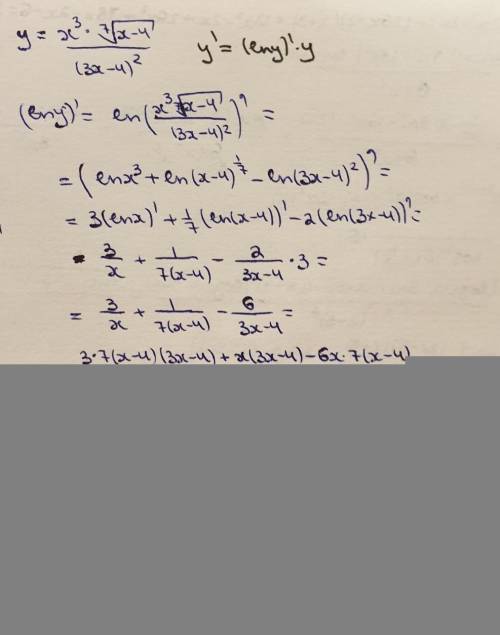 y = x³ · ⁷√(x-4) / (3x-4)²   y' = (lny)' · y
(lny)' = ln(x³ ⁷√(x-4) / (3x-4)²)' =
= (lnx³ + ln(x-4)^(1/7) - ln(3x-4)²)' =
= 3(lnx)' + 1/7 (ln(x-4))' - 2(ln(3x-4))' =
= 3/x + 1/(7(x-4)) - 2/(3x-4) · 3 =
= 3/x + 1/(7(x-4)) - 6/(3x-4) =
3·7(x-4)(3x-4) + x(3x-4) - 6x·7(x-4)